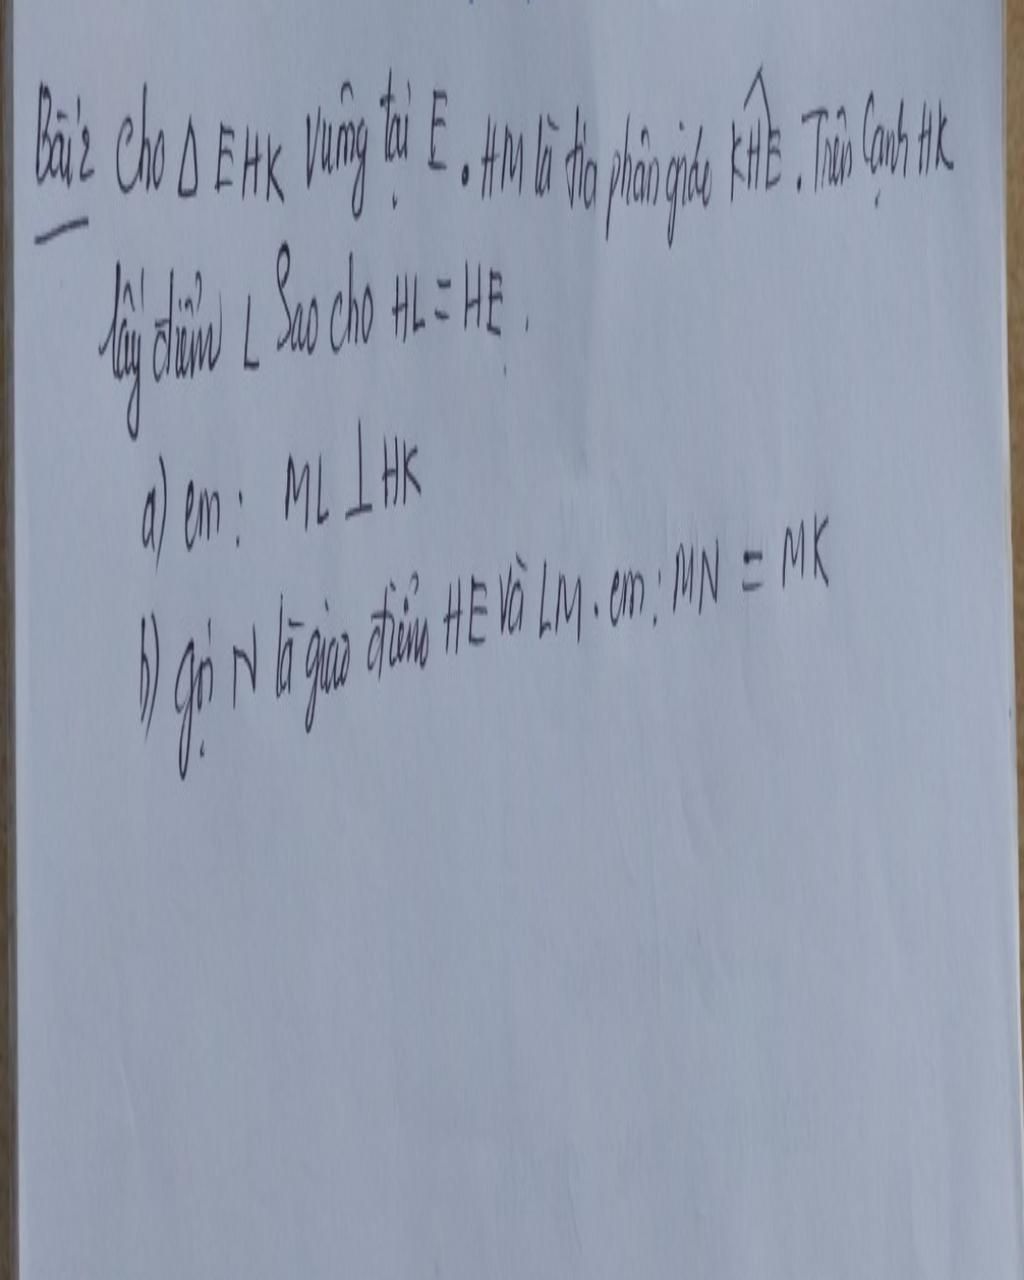 Bài 2 Cho Δ EHK vuông tại E. HM là tia phân giác KHE. Trên cạnh HK
lấy điểm L sao cho HL = HE.
a) cm: ML ⊥ HK
b) gọi N là giao điểm HE và LM. cm: MN = MK